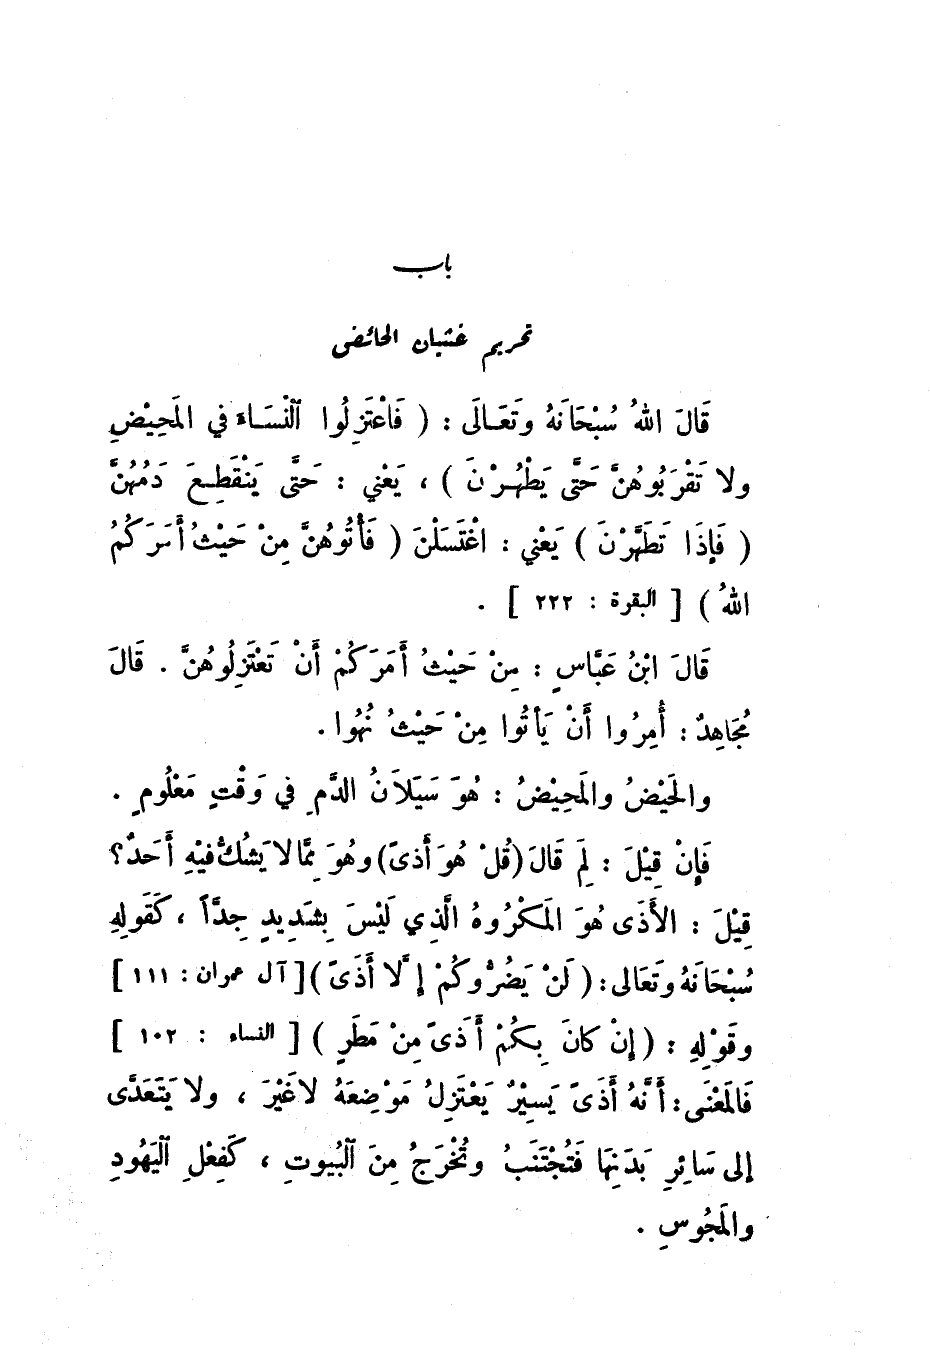 باب
تحريم غشيان الحائض
قَالَ اللهُ سُبْحَانَهُ وتَعَالَى : ( فَاعْتَزِلُوا اَلْنِّسَاءَ في المَحِيْضِ
ولا تَقْرَبُوهُنَّ حَتَّى يَطْهُرْنَ ) ، يَعْنِي : حَتَّى يَنْقَطِعَ دَمُهُنَّ
( فَإِذَا تَطَهَّرْنَ ) يَعْنِي : اغْتَسَلْنَ ( فَأْتُوهُنَّ مِنْ حَيْثُ أَمَرَكُمُ
اللهُ ) [ البقرة : ٢٢٢ ] .
قَالَ ابْنُ عَبَّاسٍ : مِنْ حَيْثُ أَمَرَكُمْ أَنْ تَعْتَزِلُوهُنَّ . قَالَ
مُجَاهِدٌ : أُمِرُوا أَنْ يَأتُوا مِنْ حَيْثُ نُهُوا .
والحَيْضُ والمَحِيْضُ : هُوَ سَيَلاَنُ الدَّمِ في وَقْتٍ مَعْلُومٍ .
فَإِنْ قِيْلَ : لِمَ قَالَ (قُلْ هُوَ أَذىً) وهُوَ مِمَّا لا يَشُكُّ فيْهِ أَحَدٌ؟
قِيْلَ : الأَذَى هُوَ المَكْرُوهُ الَّذِي لَيْسَ بِشَدِيدٍ جِدَّاً ، كَقَولِهِ
سُبْحَانَهُ وتَعَالى : ( لَنْ يَضُرُّوكُمْ إِلَّا أَذَىً ) [ آل عمران : ١١١ ]
وقَوْلِهِ : ( إِنْ كانَ بِكُمْ أَذَىً مِنْ مَطَرٍ ) [ النساء : ١٠٢ ]
فَالمَعْنَى : أَنَّهُ أَذَىً يَسِيْرٌ يَعْتَزِلُ مَوْضِعَهُ لاغَيْرَ ، ولا يَتَعَدَّى
إلى سَائِرِ بَدَنِهَا فَتُجْتَنَبُ وتُخْرَجُ مِنَ اَلْبُيوتِ ، كَفِعْلِ اَلْيَهُودِ
والمَجُوسِ .